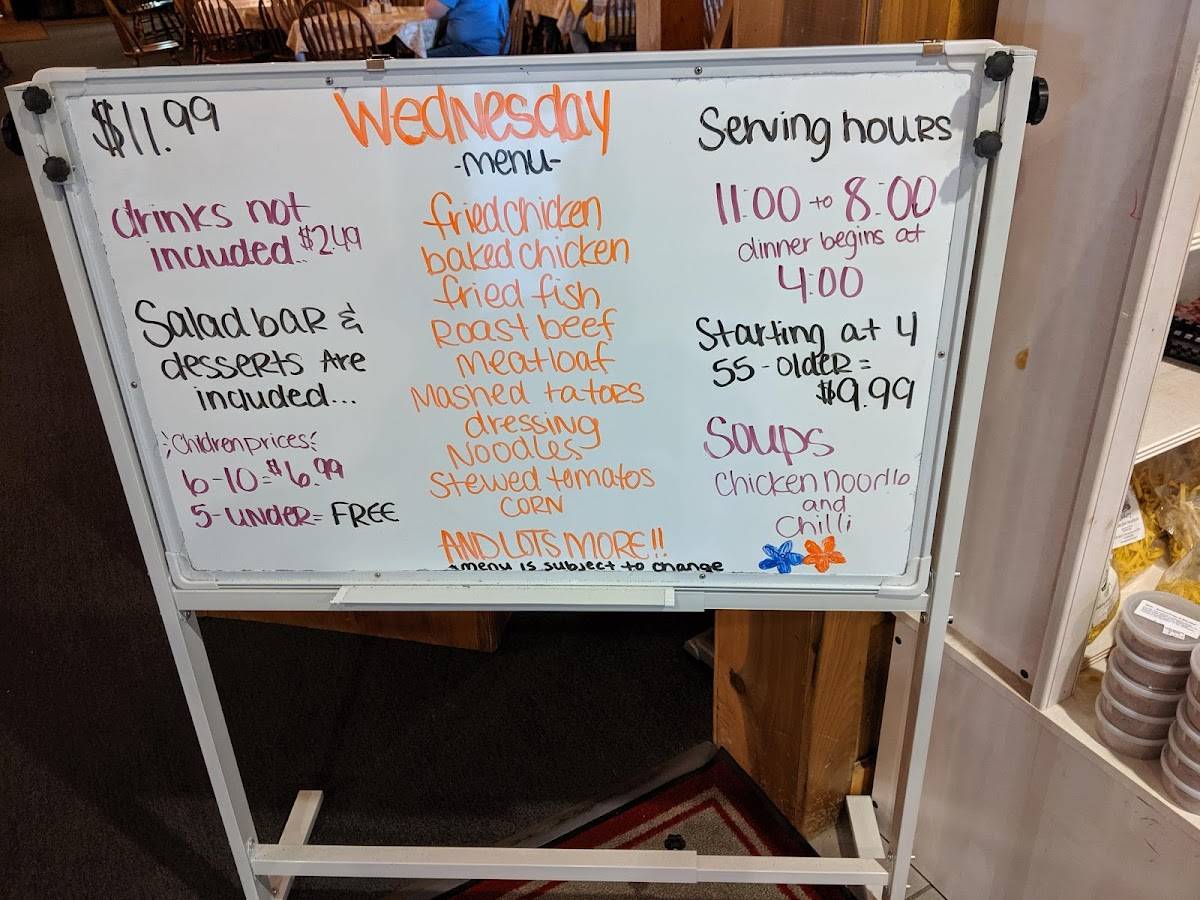 $11.99
drinks not
included.. $2.49
Salad bar &
desserts Are
included...
Children prices
6-10 = $6.99
5-under = FREE
Wednesday
-menu-
fried chicken
baked chicken
fried fish
Roast beef
meatloaf
Mashed tators
dressing
Noodles
Stewed tomatos
CORN
AND LOTS MORE!!
*menu is subject to change
Serving hours
11:00 to 8:00
dinner begins at
4:00
Starting at 4
55-older =
$9.99
Soups
Chicken noodle
and
Chilli